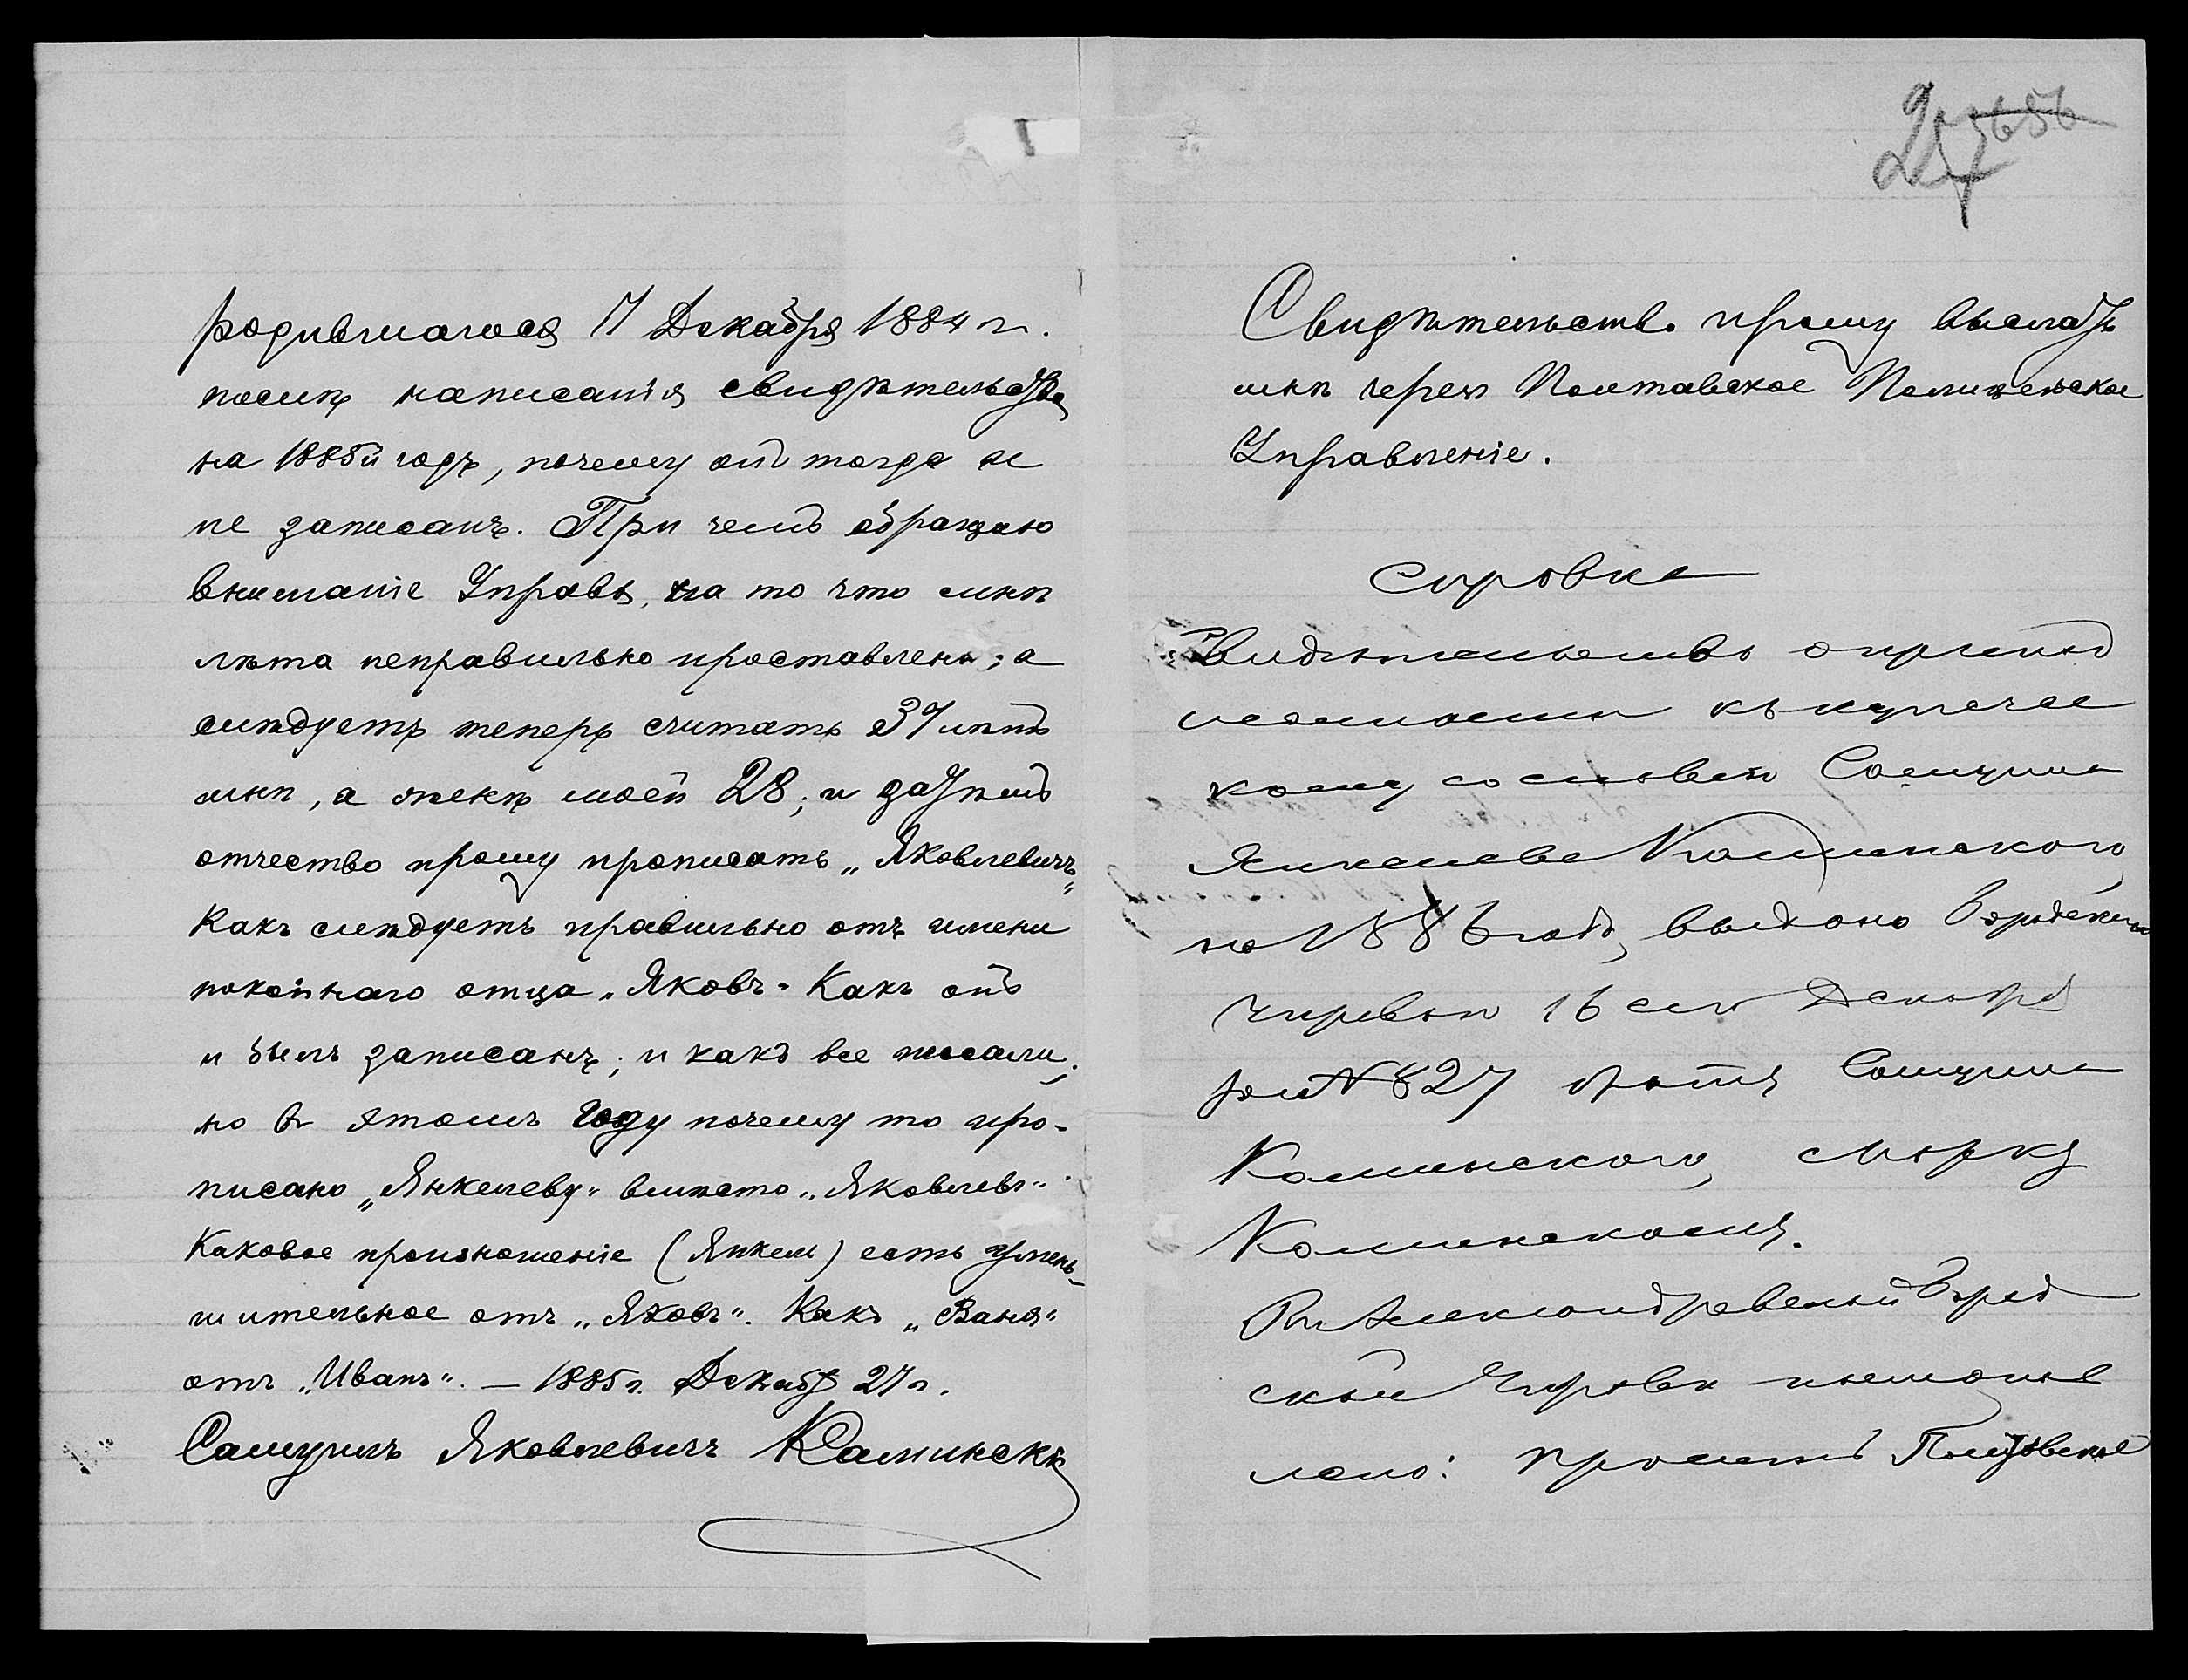 родившагося 17 Декабря 1884 г.
послѣ написанія свидѣтельства
на 1885й годъ, почему онъ тогда и
не записанъ. При чемъ обращаю
вниманіе Управы, на то что мнѣ
лѣта неправильно проставлены; а
слѣдуетъ теперь считать 37 лѣтъ
мнѣ, а женѣ моей 28; и затѣмъ
отчество прошу прописать „Яковлевичъ“
Какъ слѣдуетъ правильно отъ имени
покойнаго отца „Яковъ“ Какъ онъ
и былъ записанъ; и какъ все писали;
но въ этомъ году почему то про-
писано „Янкелеву“ вмѣсто „Яковлевъ“
Каковое произношеніе (Янкель) есть умень-
шительное отъ „Яковъ“. Какъ „Ваня“
отъ „Иванъ“. — 1885 г. Декабря 27 г.
Самуилъ Яковлевичъ Каминскій
27 5656
Свидѣтельство прошу выслать
мнѣ через Полтавское Полицейское
Управленіе.
Справка
Свидѣтельство о принад
лежности къ купечес
кому сословію Самуила
Янкелева Каминскаго
на 1886 годъ, выдано Городскою
Управою 16 сего Декабря
за № 827 брату Самуила
Каминскаго, Марку
Каминскому.
Въ Александровской Город
ской Управѣ постанов
лено: просить Полтавское